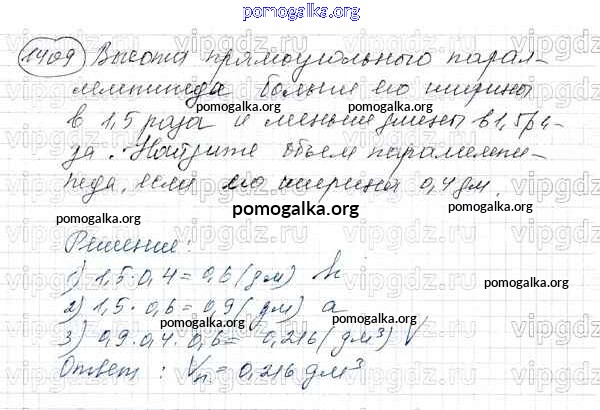 pomogalka.org
1409 Высота прямоугольного парал-
лелепипеда больше его ширины
pomogalka.org pomogalka.org
в 1,5 раза и меньше длины в 1,5 ра-
за. Найдите объем параллелепи-
педа, если его ширина 0,4 дм.
pomogalka.org pomogalka.org
pomogalka.org
Решение:
1) 1,5 · 0,4 = 0,6 (дм) h
pomogalka.org
2) 1,5 · 0,6 = 0,9 (дм) a
pomogalka.org pomogalka.org
3) 0,9 · 0,4 · 0,6 = 0,216 (дм³) V
Ответ: Vп = 0,216 дм³
pomogalka.org